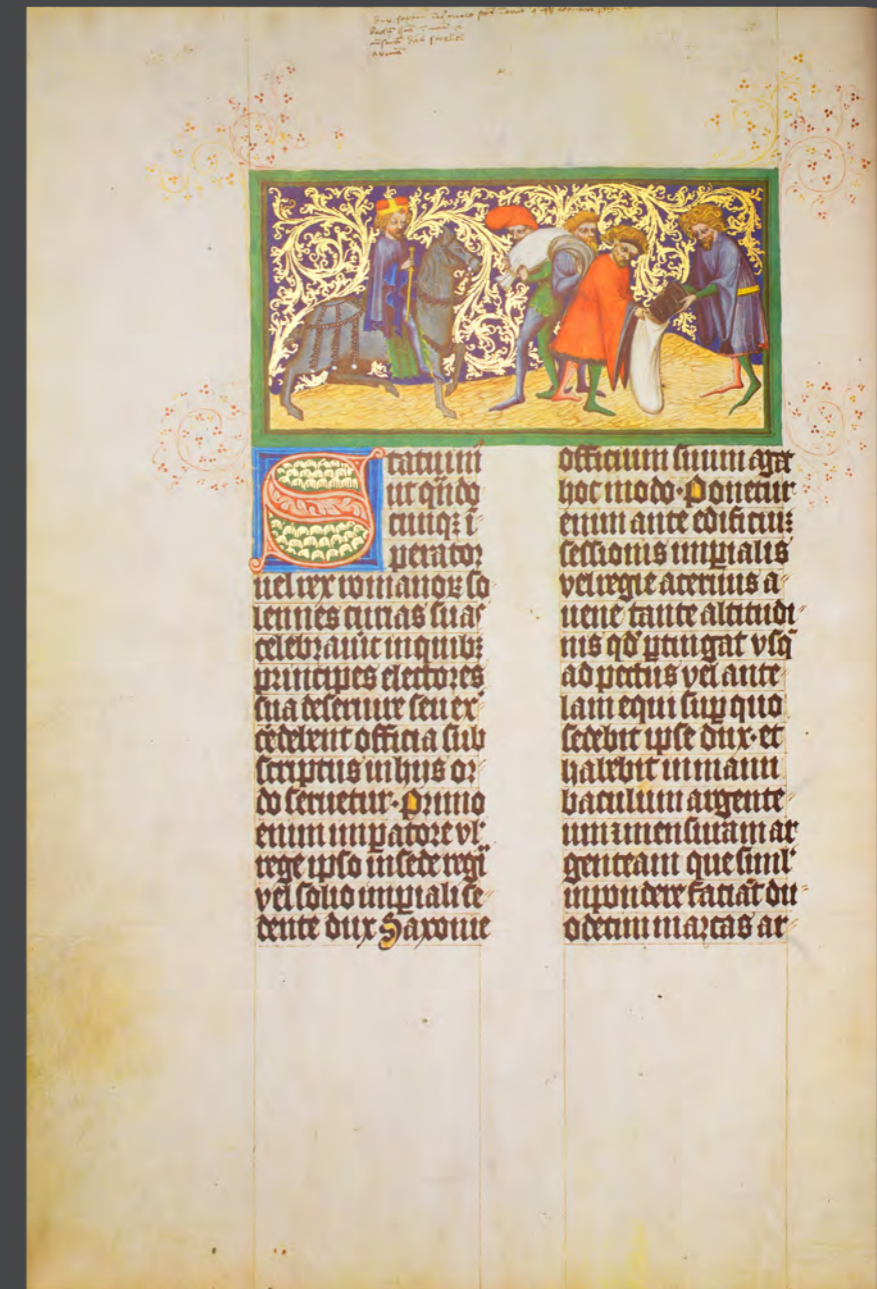 Statuim
ut qn̄do
cuiqꝫ ī
perator
uel rex romanoꝝ so
lennes curias suas
celebrauit in quibꝫ
principes electores
sua deseruire seu ex
cedebent officia sub
scriptus in hijs or
do seruetur · Primo
enim imꝑatore vl'
rege ipso in sede regī
vel solio imꝑiali se
dente dux Saxonie
officium suum agat
hoc modo · Ponetur
enim ante edificiuꝫ
sessionis imꝑialis
vel regie aceruus a
uene tante altitudi
nis qd̄ ꝑtingat vsqꝫ
ad pectus vel ante
lam equi suꝑ quo
sedebit ipse dux · et
habebit in manu
baculum argente
um ⁊ mensuram ar
genteam que siml'
in pondere faciāt du
odecim marcas ar